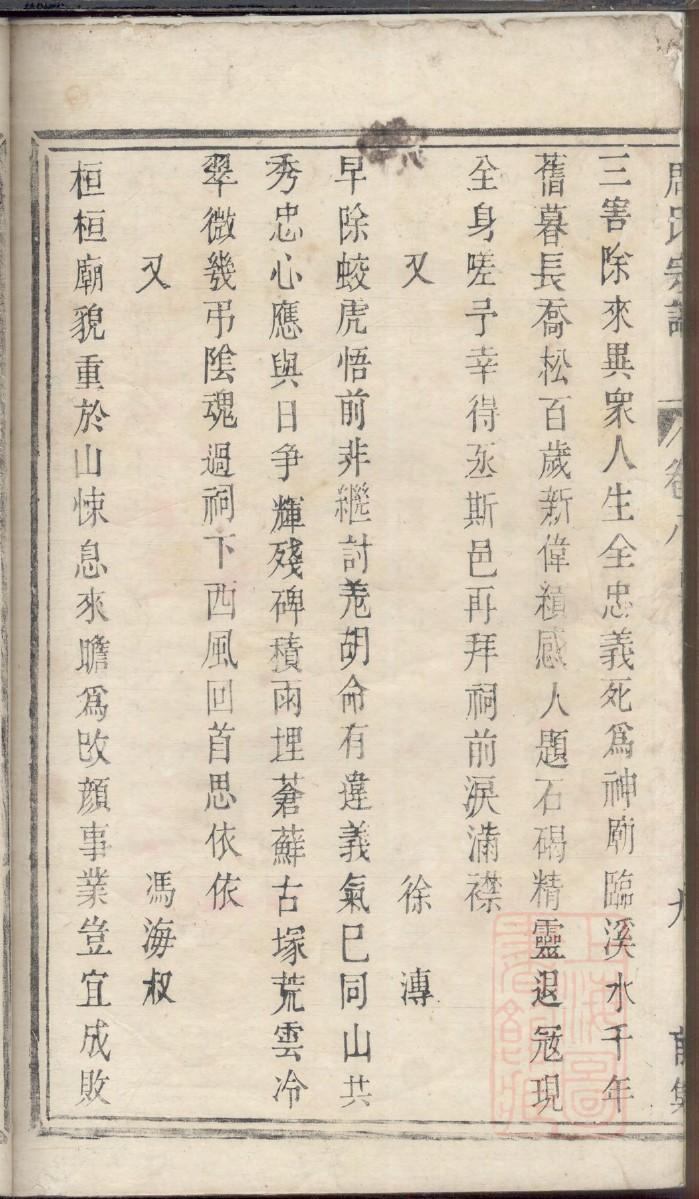 周氏宗譜 卷八 九
三害除來異衆人生全忠義死爲神廟臨溪水千年
舊暮長喬松百歲新偉績感人題石碣精靈退冦現
全身嗟予幸得丞斯邑再拜祠前淚滿襟
又 徐漙
早除蛟虎悟前非繼討羗胡命有違義氣已同山共
秀忠心應與日争輝殘碑積雨埋蒼蘚古塚荒雲冷
翠微幾弔陰魂過祠下西風回首思依依
又 馮海叔
桓桓廟貌重於山悚息來瞻爲改顔事業豈宜成敗